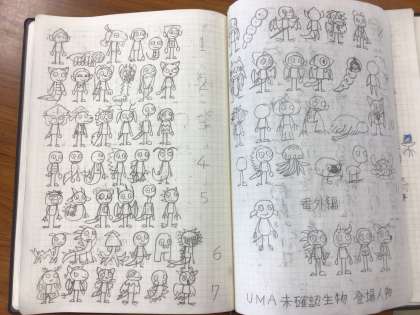 1
2
4
5
6
7
番外編
UMA 未確認生物 登場人物